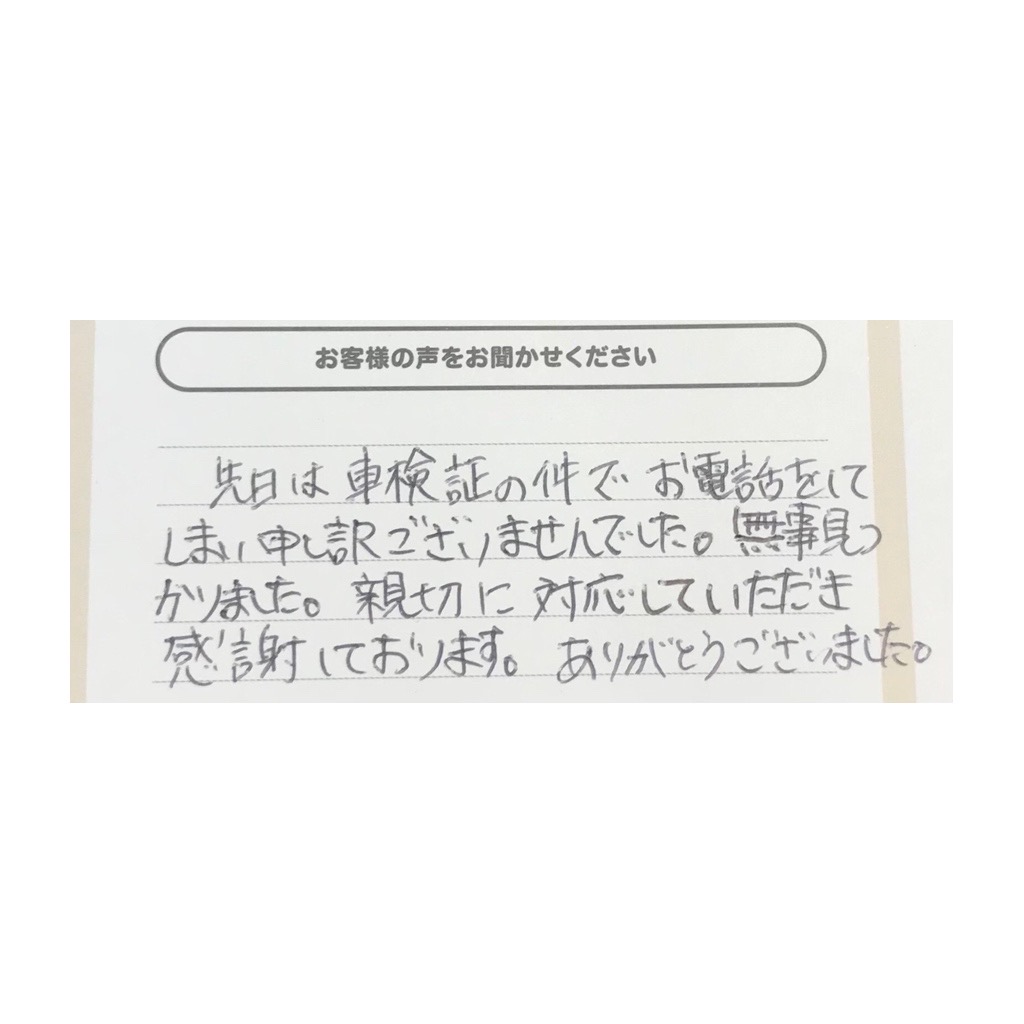 お客様の声をお聞かせください
先日は車検証の件でお電話をして
しまい申し訳ございませんでした。無事見つ
かりました。親切に対応していただき
感謝しております。ありがとうございました。